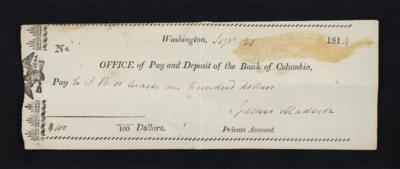 Washington, Sepr 21 1814
No.
OFFICE of Pay and Deposit of the Bank of Columbia,
Pay to A. B. or bearer one hundred dollars
James Madison
$100 100 Dollars. Private Account.